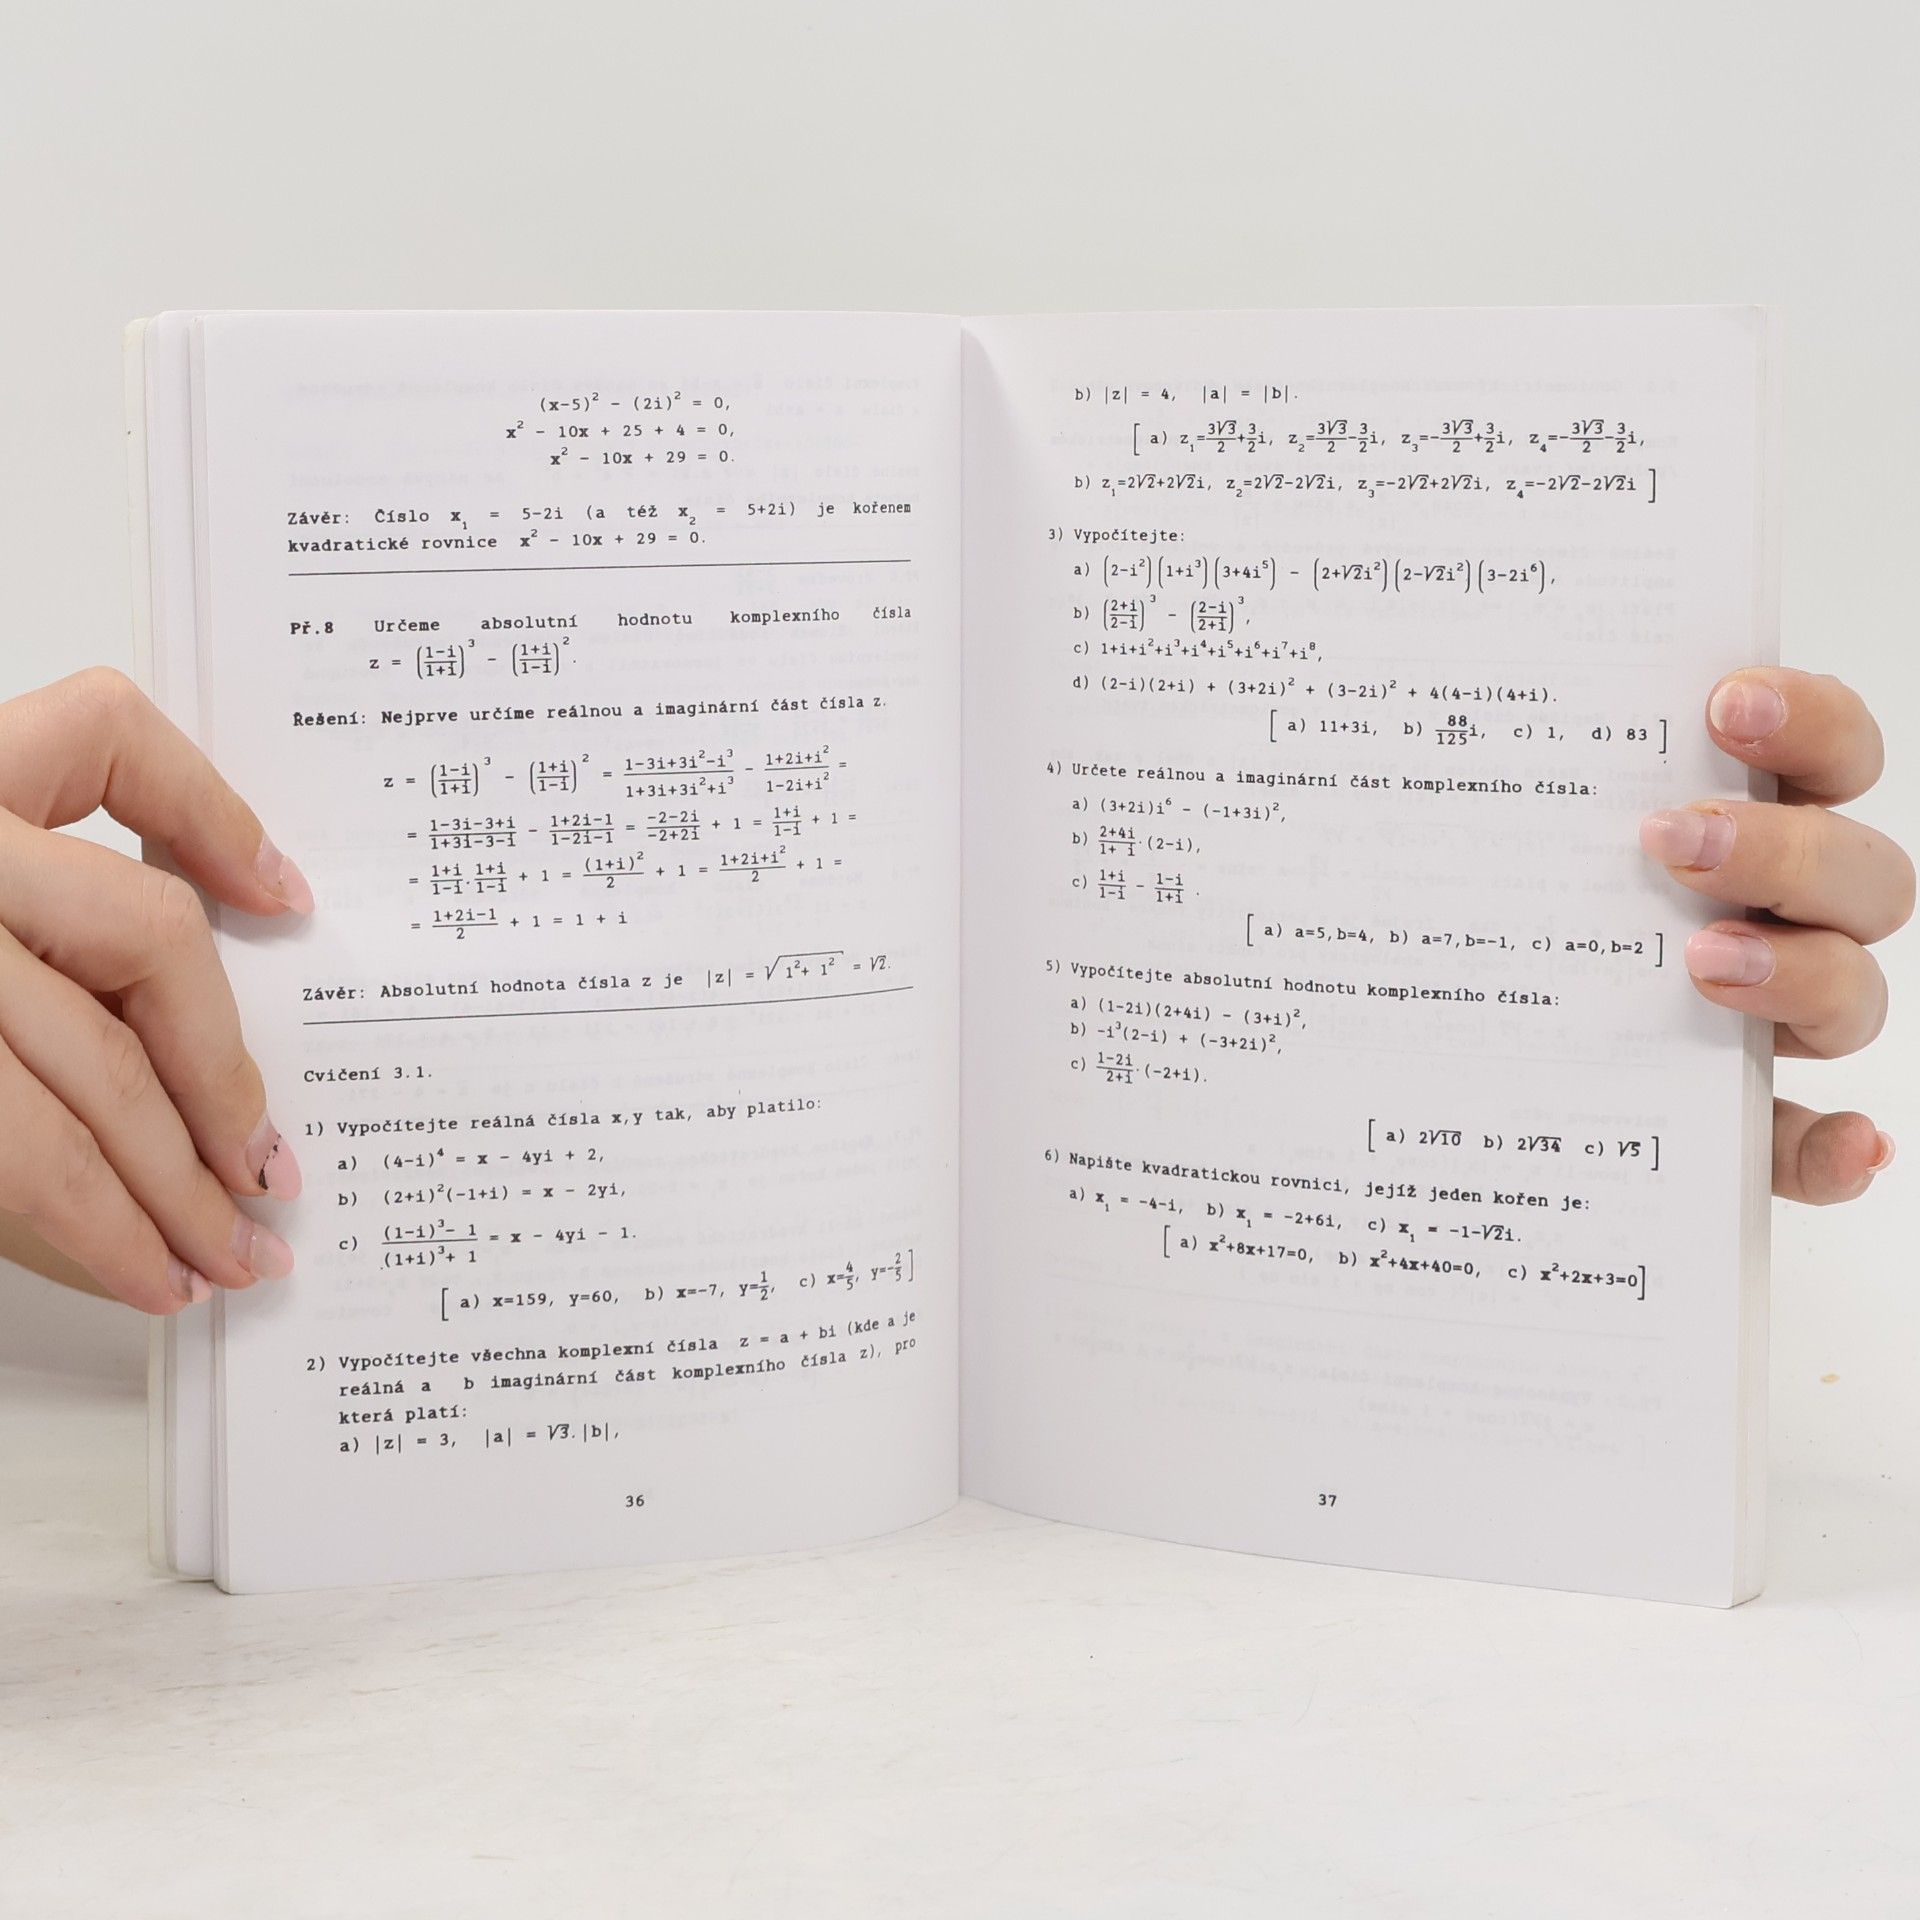 (x-5)² - (2i)² = 0,
x² - 10x + 25 + 4 = 0,
x² - 10x + 29 = 0.
Závěr: Číslo x₁ = 5-2i (a též x₂ = 5+2i) je kořenem
kvadratické rovnice x² - 10x + 29 = 0.
Př.8 Určeme absolutní hodnotu komplexního čísla
z = ((1-i)/(1+i))³ - ((1+i)/(1-i))².
Řešení: Nejprve určíme reálnou a imaginární část čísla z.
z = ((1-i)/(1+i))³ - ((1+i)/(1-i))² = (1-3i+3i²-i³)/(1+3i+3i²+i³) - (1+2i+i²)/(1-2i+i²) =
= (1-3i-3+i)/(1+3i-3-i) - (1+2i-1)/(1-2i-1) = (-2-2i)/(-2+2i) + 1 = (1+i)/(1-i) + 1 =
= (1+i)/(1-i).(1+i)/(1-i) + 1 = (1+i)²/2 + 1 = (1+2i+i²)/2 + 1 =
= (1+2i-1)/2 + 1 = 1 + i
Závěr: Absolutní hodnota čísla z je |z| = √(1²+ 1²) = √2.
Cvičení 3.1.
1) Vypočítejte reálná čísla x,y tak, aby platilo:
a) (4-i)⁴ = x - 4yi + 2,
b) (2+i)²(-1+i) = x - 2yi,
c) ((1-i)³- 1)/((1+i)³+ 1) = x - 4yi - 1.
[ a) x=159, y=60, b) x=-7, y=1/2, c) x=4/5, y=-2/5 ]
2) Vypočítejte všechna komplexní čísla z = a + bi (kde a je
reálná a b imaginární část komplexního čísla z), pro
která platí:
a) |z| = 3, |a| = √3.|b|,
36
b) |z| = 4, |a| = |b|.
[ a) z₁=3√3/2+3/2i, z₂=3√3/2-3/2i, z₃=-3√3/2+3/2i, z₄=-3√3/2-3/2i,
b) z₁=2√2+2√2i, z₂=2√2-2√2i, z₃=-2√2+2√2i, z₄=-2√2-2√2i ]
3) Vypočítejte:
a) (2-i²)(1+i³)(3+4i⁵) - (2+√2i²)(2-√2i²)(3-2i⁶),
b) ((2+i)/(2-i))³ - ((2-i)/(2+i))³,
c) 1+i+i²+i³+i⁴+i⁵+i⁶+i⁷+i⁸,
d) (2-i)(2+i) + (3+2i)² + (3-2i)² + 4(4-i)(4+i).
[ a) 11+3i, b) 88/125i, c) 1, d) 83 ]
4) Určete reálnou a imaginární část komplexního čísla:
a) (3+2i)i⁶ - (-1+3i)²,
b) (2+4i)/(1+ i).(2-i),
c) (1+i)/(1-i) - (1-i)/(1+i) .
[ a) a=5,b=4, b) a=7,b=-1, c) a=0,b=2 ]
5) Vypočítejte absolutní hodnotu komplexního čísla:
a) (1-2i)(2+4i) - (3+i)²,
b) -i³(2-i) + (-3+2i)²,
c) (1-2i)/(2+i).(-2+i).
[ a) 2√10 b) 2√34 c) √5 ]
6) Napište kvadratickou rovnici, jejíž jeden kořen je:
a) x₁ = -4-i, b) x₁ = -2+6i, c) x₁ = -1-√2i.
[ a) x²+8x+17=0, b) x²+4x+40=0, c) x²+2x+3=0]
37